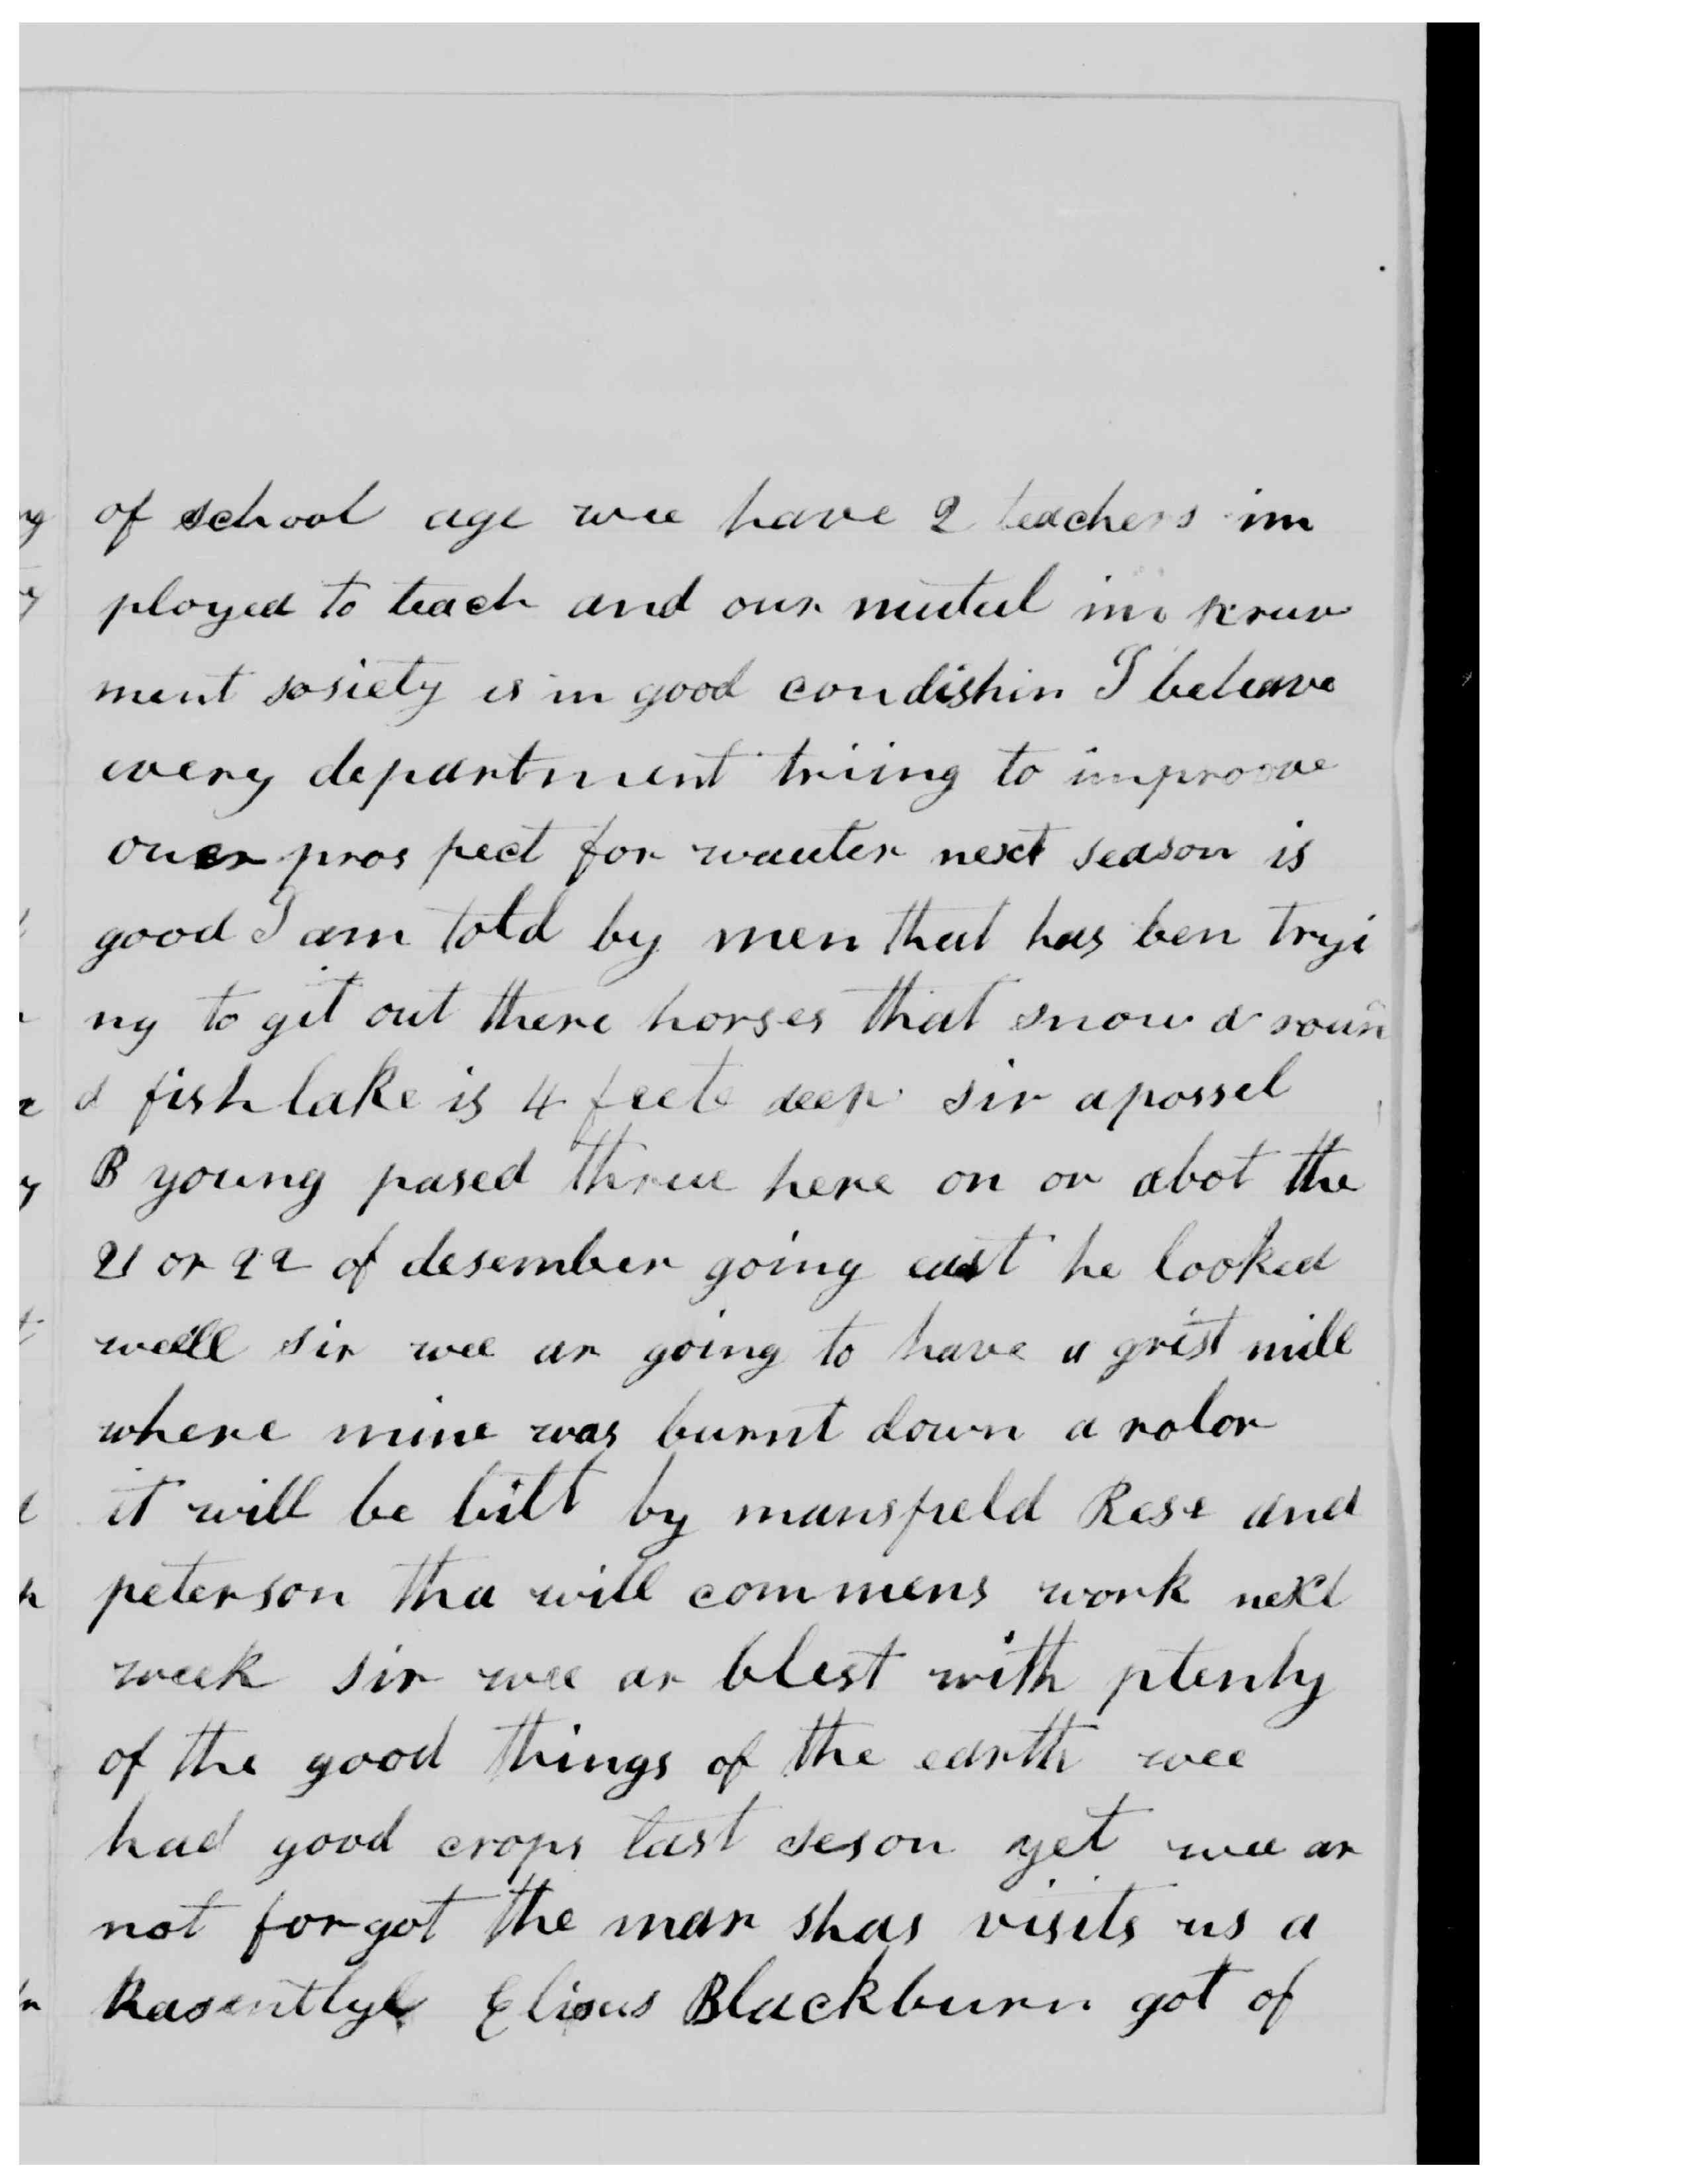 of school age wee have 2 teachers im
ployed to teach and our mutul im pruv
ment sosiety is in good condishin I beleave
every department triing to improove
ouer pros pect for wauter next season is
good I am told by men that has ben tryi
ng to git out there horses that snow a roun
d fish lake is 4 feete deep sir apossel
B young pased threue here on or abot the
21 or 22 of desember going east he looked
well sir wee ar going to have a grist mill
where mine was burnt down a rolor
it will be bilt by mansfield Rese and
peterson tha will commens work next
week sir wee ar blest with plenty
of the good things of the earth wee
had good crops last seson yet wee ar
not forgot the mar shas visits us a
Rasently Elisus Blackburn got of